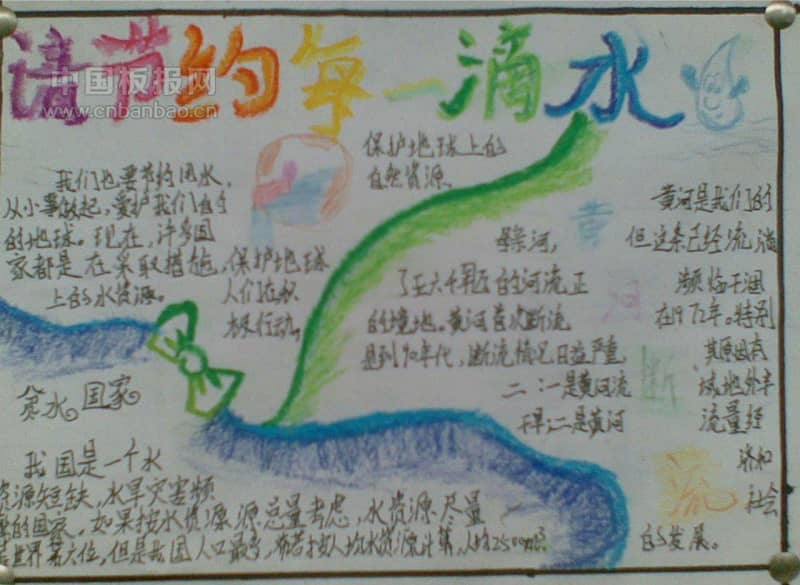 请节约每一滴水
中国板报网
www.cnbanbao.cn
保护地球上的
自然资源。
我们也要节约用水，
从小事做起，爱护我们自己
的地球。现在，许多国
家都是在采取措施，保护地球
上的水资源。
人们在积
极行动。
贫水国家
我国是一个水
资源短缺，水旱灾害频
的国家，如果按水资源源总量考虑，水资源尽量
世界第六位，但是我国人口最多，若按人均水资源计算，人均2500
黄河断流
黄河是我们的
母亲河，但这条已经流淌
了五六千年的河流正频临干涸
的境地。黄河首次断流在1972年。特别
是到90年代，断流情况日益严重
其原因有
二：一是黄河流域地处半
干旱；二是黄河流量经
济和
社会
的发展。